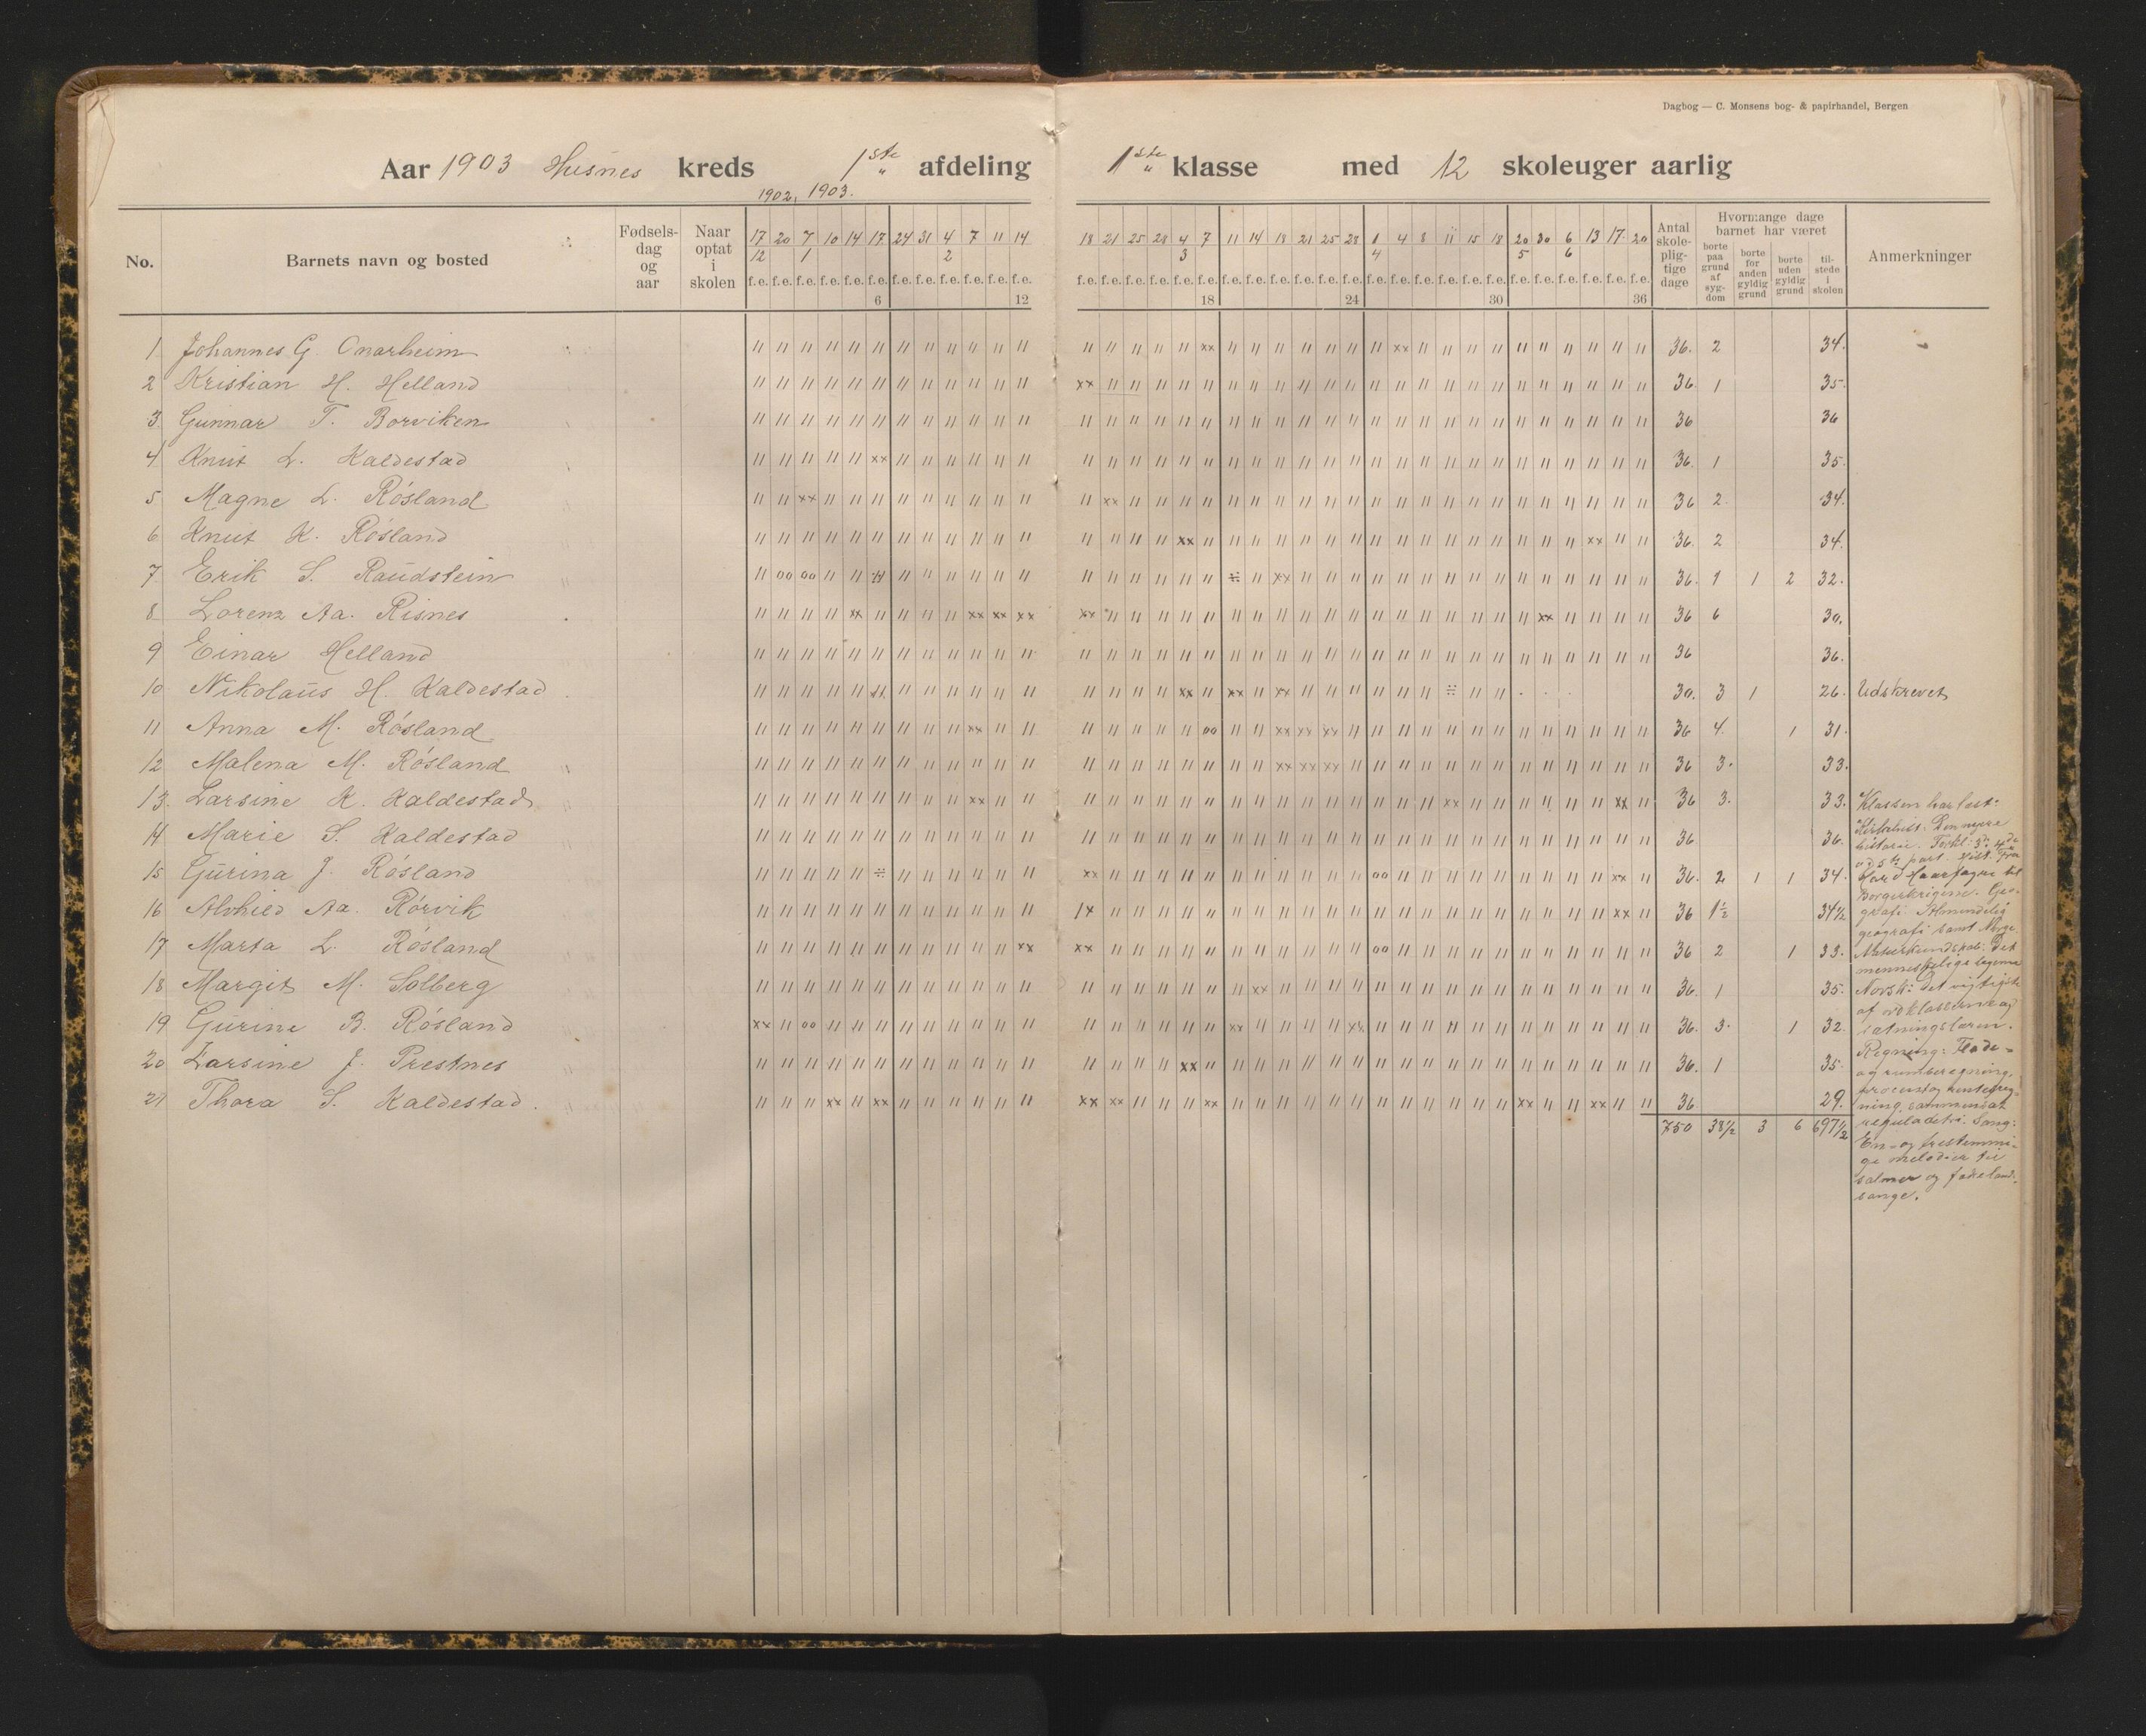 Dagbog — C. Monsens bog- & papirhandel, Bergen
Aar 1903 Husnes kreds 1ste afdeling 1ste klasse med 12 skoleuger aarlig
1902, 1903.
No. Barnets navn og bosted Fødsels-dag og aar Naar optat i skolen 17/12 20 7/1 10 14 17 24 31 4/2 7 11 14 18 21 25 28 4/3 7 11 14 18 21 25 28 1/4 4 8 11 15 18 20/5 30 6/6 13 17 20 Antal skole-plig-tige dage Hvormange dage barnet har været Anmerkninger
f.e. f.e. f.e. f.e. f.e. f.e. f.e. f.e. f.e. f.e. f.e. f.e. f.e. f.e. f.e. f.e. f.e. f.e. f.e. f.e. f.e. f.e. f.e. f.e. f.e. f.e. f.e. f.e. f.e. f.e. f.e. f.e. f.e. f.e. f.e. f.e. borte paa grund af syg-dom borte for anden gyldig grund borte uden gyldig grund til-stede i skolen
6 12 18 24 30 36
1 Johannes G. Onarheim 36. 2 34.
2 Kristian H. Helland 36 1 35.
3 Gunnar T. Borviken 36 36
4 Knut L. Kaldestad 36. 1 35.
5 Magne L. Røsland 36 2 34.
6 Knut K. Røsland 36. 2 34.
7 Erik S. Raudstein 36. 1 1 2 32.
8 Lorenz Aa. Risnes 36 6 30.
9 Einar Helland 36 36.
10 Nikolaus H. Kaldestad 30. 3 1 26. Udskrevet
11 Anna M. Røsland 36 4. 1 31.
12 Malena M. Røsland 36 3. 33.
13. Larsine K. Kaldestad 36 3. 33.
14 Marie S. Kaldestad 36 36.
15 Gurina J. Røsland 36. 2 1 1 34.
16 Alvhild Aa. Rørvik 36 1½ 34½
17 Marta L. Røsland 36 2 1 33.
18 Margit M. Solberg 36. 1 35.
19 Gurine B. Røsland 36. 3. 1 32.
20 Larsine J. Prestnes 36. 1 35.
21 Thora S. Kaldestad. 36. 29.
750 38½ 3 6 697½
Klassen har læst:
Den nyere
historie. Forkl: 3de 4de
og 5te part. Hist. Fra
Har. Haarfagre til
Borgerkrigene. Geo-
grafi: Almindelig
geografi samt Norge.
Naturkundskab: Det
menneskelige legeme
Norsk: Det vigtigste
af ordklasserne og
sætningslæren.
Regning: Flade-
og rumberegning,
procent og rentereg-
ning, sammensat
reguladetri. Sang:
En- og trestemmi-
ge melodier til
salmer og fædrelands-
sange.